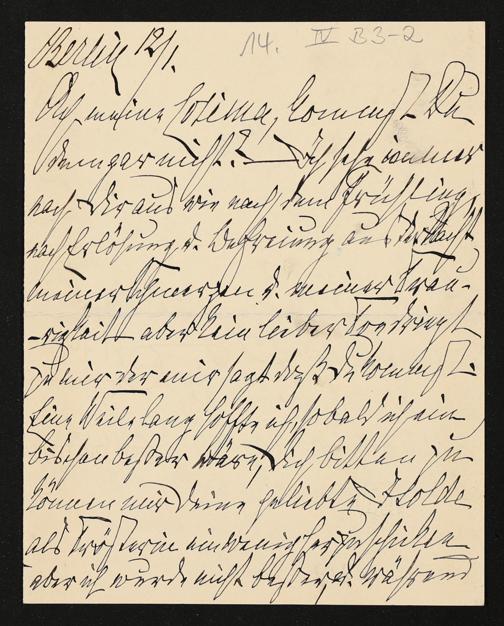 Berlin 12/1.
14. IV B3-2
Ach meine Cosima, kommst Du
denn gar nicht? — Ich sehe immer
nach Dir aus wie nach dem Frühling,
nach Erlösung u. Befreiung aus der Nacht
meiner Schmerzen u. meiner Trau-
-rigkeit aber kein lieber Ton dringt
zu mir der mir sagt daß Du kommst.
Eine Weile lang hoffte ich, sobald ich ein
bischen besser wäre, Dich bitten zu
können mir Deine geliebte Isolde
als Trösterin ein wenig herzuschicken
aber ich wurde nicht besser, u. während